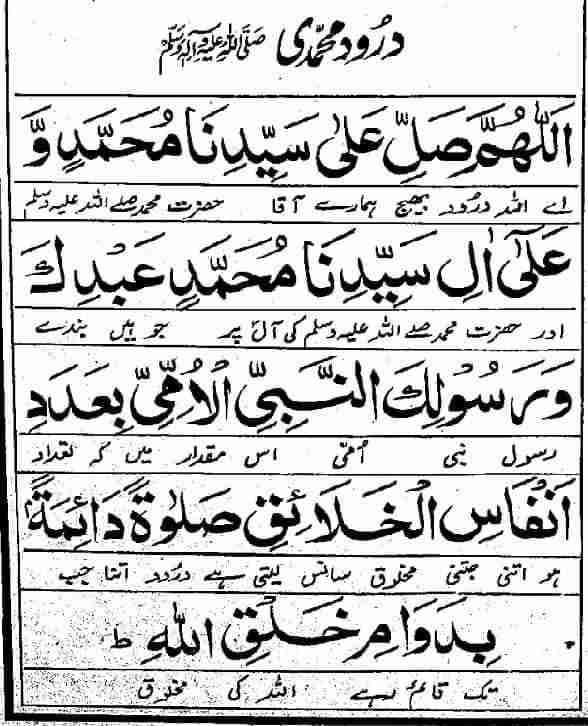 درُود محمّدی صَلَّی اللہُ عَلَیْہِ وَاٰلِہٖ وَسَلَّمْ
اَللّٰهُمَّ صَلِّ عَلٰی سَیِّدِنَا مُحَمَّدٍ وَّ
اے اللہ درُود بھیج ہمارے آقا حضرت محمد صلے اللہ علیہ وسلم
عَلٰۤی اٰلِ سَیِّدِنَا مُحَمَّدٍ عَبْدِكَ
اور حضرت محمد صلے اللہ علیہ وسلم کی آل پر جو ہیں بندے
وَ رَسُوْلِكَ النَّبِیِّ الْاُمِّیِّ بِعَدَدِ
رسول نبی اُمّی اس مقدار میں کہ تعداد
اَنْفَاسِ الْخَلَائِقِ صَلٰوةً دَائِمَةً
ہو اتنی جتنی مخلوق سانس لیتی ہے درُود اتنا جب
بِدَوَامِ خَلْقِ اللهِ ط
تک قائم رہے اللہ کی مخلوق